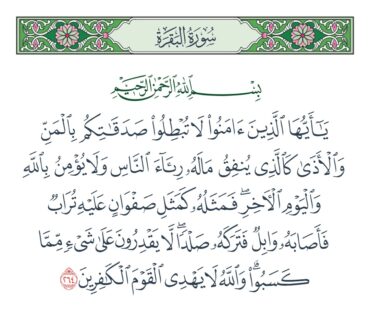 سُورَةُ البَقَرَةِ
بِسْمِ ٱللَّهِ ٱلرَّحْمَٰنِ ٱلرَّحِيمِ
يَٰٓأَيُّهَا ٱلَّذِينَ ءَامَنُوا۟ لَا تُبْطِلُوا۟ صَدَقَٰتِكُم بِٱلْمَنِّ
وَٱلْأَذَىٰ كَٱلَّذِى يُنفِقُ مَالَهُۥ رِئَآءَ ٱلنَّاسِ وَلَا يُؤْمِنُ بِٱللَّهِ
وَٱلْيَوْمِ ٱلْءَاخِرِ ۖ فَمَثَلُهُۥ كَمَثَلِ صَفْوَانٍ عَلَيْهِ تُرَابٌ
فَأَصَابَهُۥ وَابِلٌ فَتَرَكَهُۥ صَلْدًا ۖ لَّا يَقْدِرُونَ عَلَىٰ شَىْءٍ مِّمَّا
كَسَبُوا۟ ۗ وَٱللَّهُ لَا يَهْدِى ٱلْقَوْمَ ٱلْكَٰفِرِينَ ٢٦٤